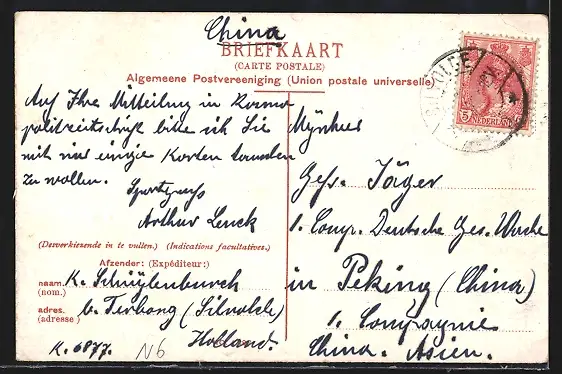 China
BRIEFKAART
(CARTE POSTALE)
Algemeene Postvereeniging (Union postale universelle)
5
NEDERLAND
Auf Ihre Mitteilung in Kosmo
politzeitschrift bitte ich Sie
mit mir einige Karten tauschen
zu wollen.
Sportgruss
Arthur Lenck
(Desverkiezende in te vullen.) (Indications facultatives.)
Afzender: (Expéditeur:)
naam. K. Schuylenburch
(nom.)
adres. b. Terborg (Silvolde)
(adresse)
Holland.
K. 6877.
N6
Mijnheer
Gefr. Jäger
1. Comp. Deutsche Ges. Wache
in Peking (China)
1. Compagnie
China. Asien.